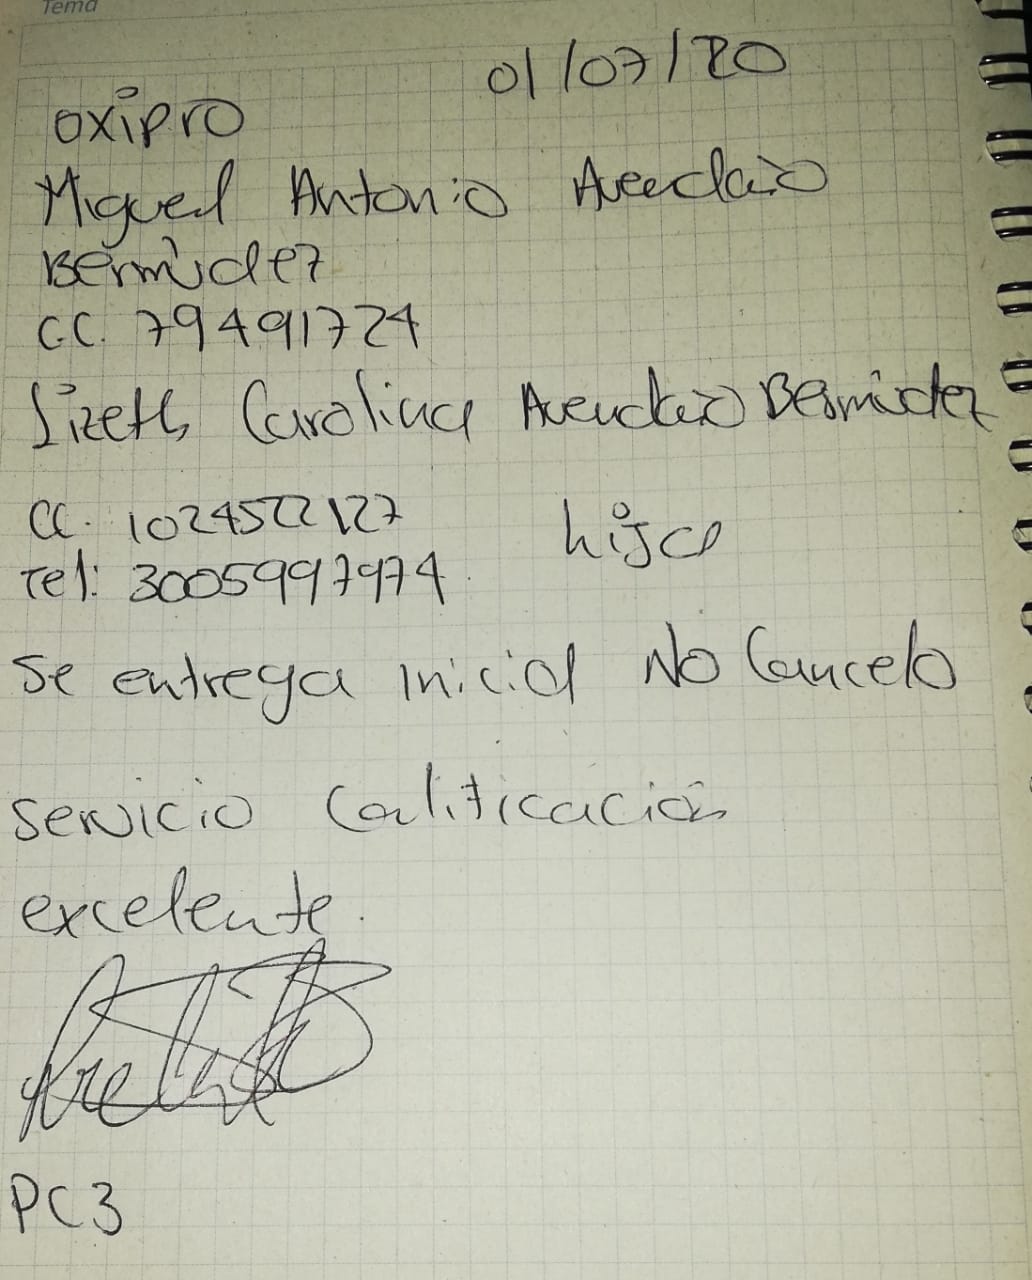 Tema
01/07/20
oxipro
Miguel Antonio Avendaño
Bermúdez
CC. 79491724
Lizeth Carolina Avendaño Bermúdez
CC. 1024522127 hija
Tel: 3005997974.
Se entrega inicial No Cancelo
servicio Calificación
excelente.
PC3